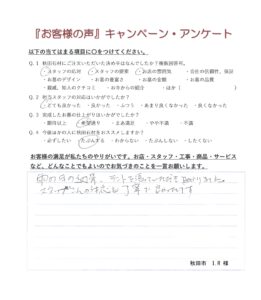 『お客様の声』キャンペーン・アンケート
以下の当てはまる項目に○をつけてください。
Q.1 秋田石材にご注文いただいた決め手はなんでしたか？複数回答可。
・スタッフの応対 ・スタッフの提案 ・お店の雰囲気 ・会社の信頼性、保証
・お墓のデザイン ・お墓の豊富さ ・お墓の金額 ・お墓の品質
・親戚、知人のクチコミ ・お寺からの紹介 ・ほか（ ）
Q.2 担当スタッフの対応はいかがでしたか？
・とても良かった ・良かった ・ふつう ・あまり良くなかった ・良くなかった
Q.3 完成したお墓の仕上がりはいかがでしたか？
・期待以上 ・希望通り ・まあ満足 ・やや不満 ・不満
Q.4 今後ほかの人に秋田石材をおススメしますか？
・必ずしたい ・たぶんする ・わからない ・たぶんしない ・したくない
お客様の満足が私たちのやりがいです。お店・スタッフ・工事・商品・サービス
など、どんなことでもよいのでお気づきのことを一言お願いします。
雨の日の納骨、テントを
スタッフさんの対応も丁寧で良かったです
秋田市 I.R 様